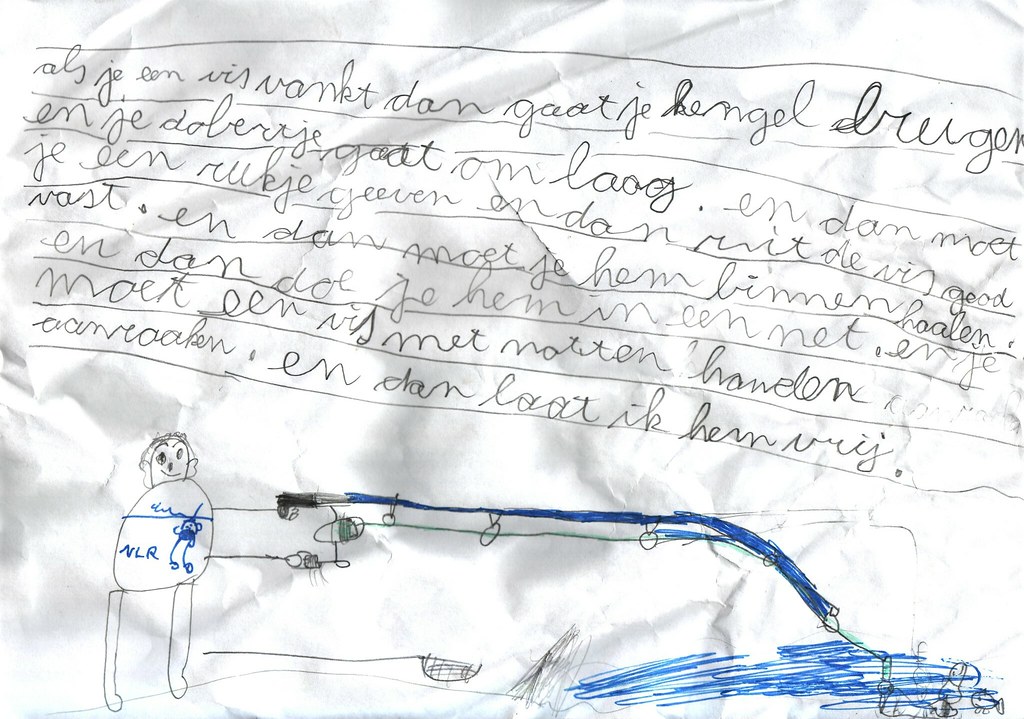 als je een vis vankt dan gaat je hengel bruigen
en je dobertje gaat om laag. en dan moet
je een rukje geeven en dan zit de vis goed
vast. en dan moet je hem binnen haalen.
en dan doe je hem in een net. en je
moet een vis met natten handen
aanraaken. en dan laat ik hem vrij.
NLR